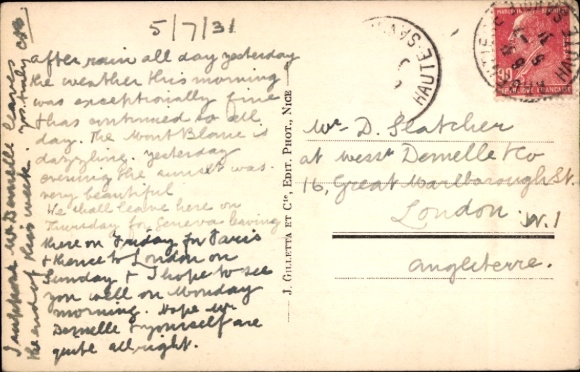 5/7/31
After rain all day yesterday
the weather this morning
was exceptionally fine
& has continued so all
day. The Mont Blanc is
dazzling. Yesterday
evening the sunset was
very beautiful
We shall leave here on
Thursday for Geneva leaving
there on Friday for Paris
& thence to London on
Sunday & I hope to see
you well on Monday
morning. Hope Mr
Demelle & yourself are
quite allright.
I suppose Mr Demelle leaves
the end of this week. yrs truly
J. GILLETTA ET Cie, EDIT. PHOT., NICE
HAUTE-SAV
HAUTE
90
REPUBLIQUE FRANCAISE
Mr D. Slatcher
at Demelle & Co
16, Great Marlborough St.
London W.1
Angleterre.